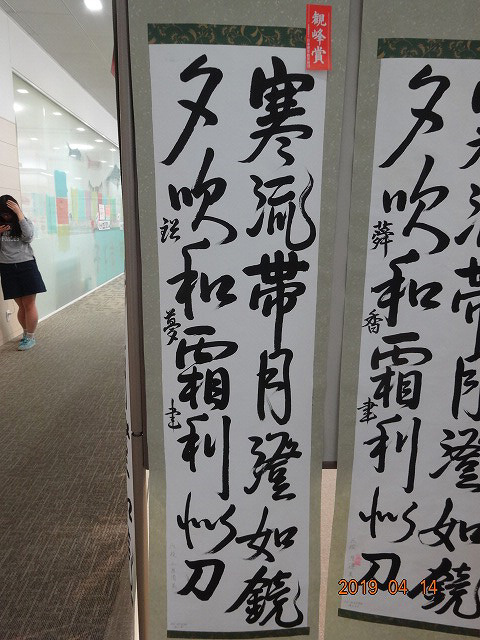 観峰賞
寒流帶月澄如鏡
夕吹和霜利似刀
鋭夢書
寒流帶月澄如鏡
夕吹和霜利似刀
香書
2019 04 14